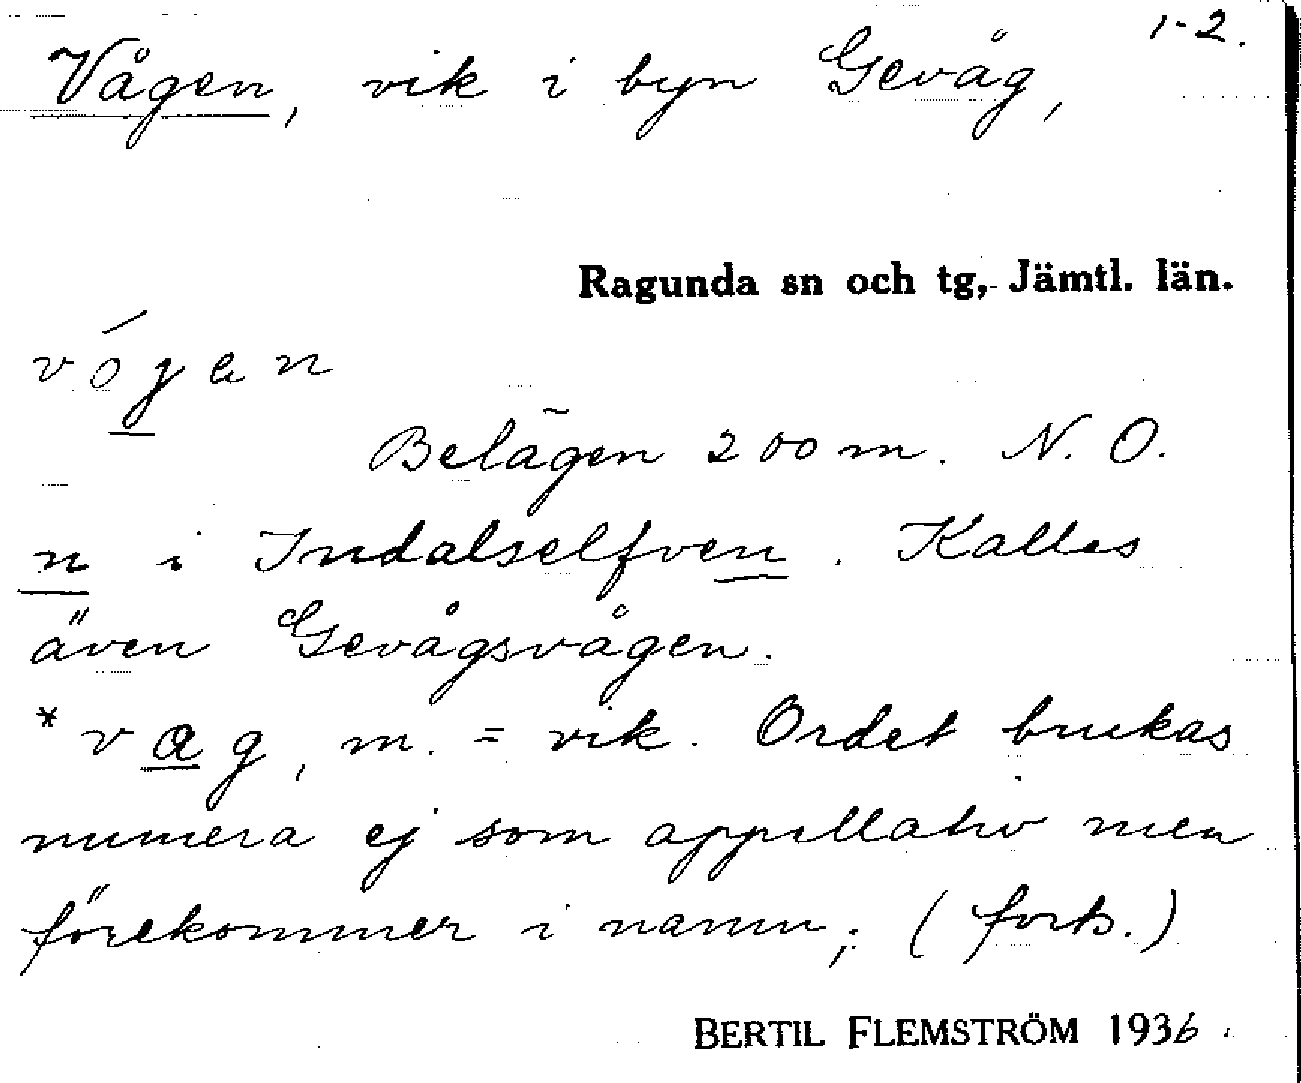 1-2.
Vågen, vik i byn Gevåg,
Ragunda sn och tg, Jämtl. län.
Belägen 200 m. N. O.
n i Indalselfven. Kallas
även Gevågsvågen.
* væg, m. = vik. Ordet brukas
numera ej som appellativ men
förekommer i namn; (forts.)
BERTIL FLEMSTRÖM 1936.